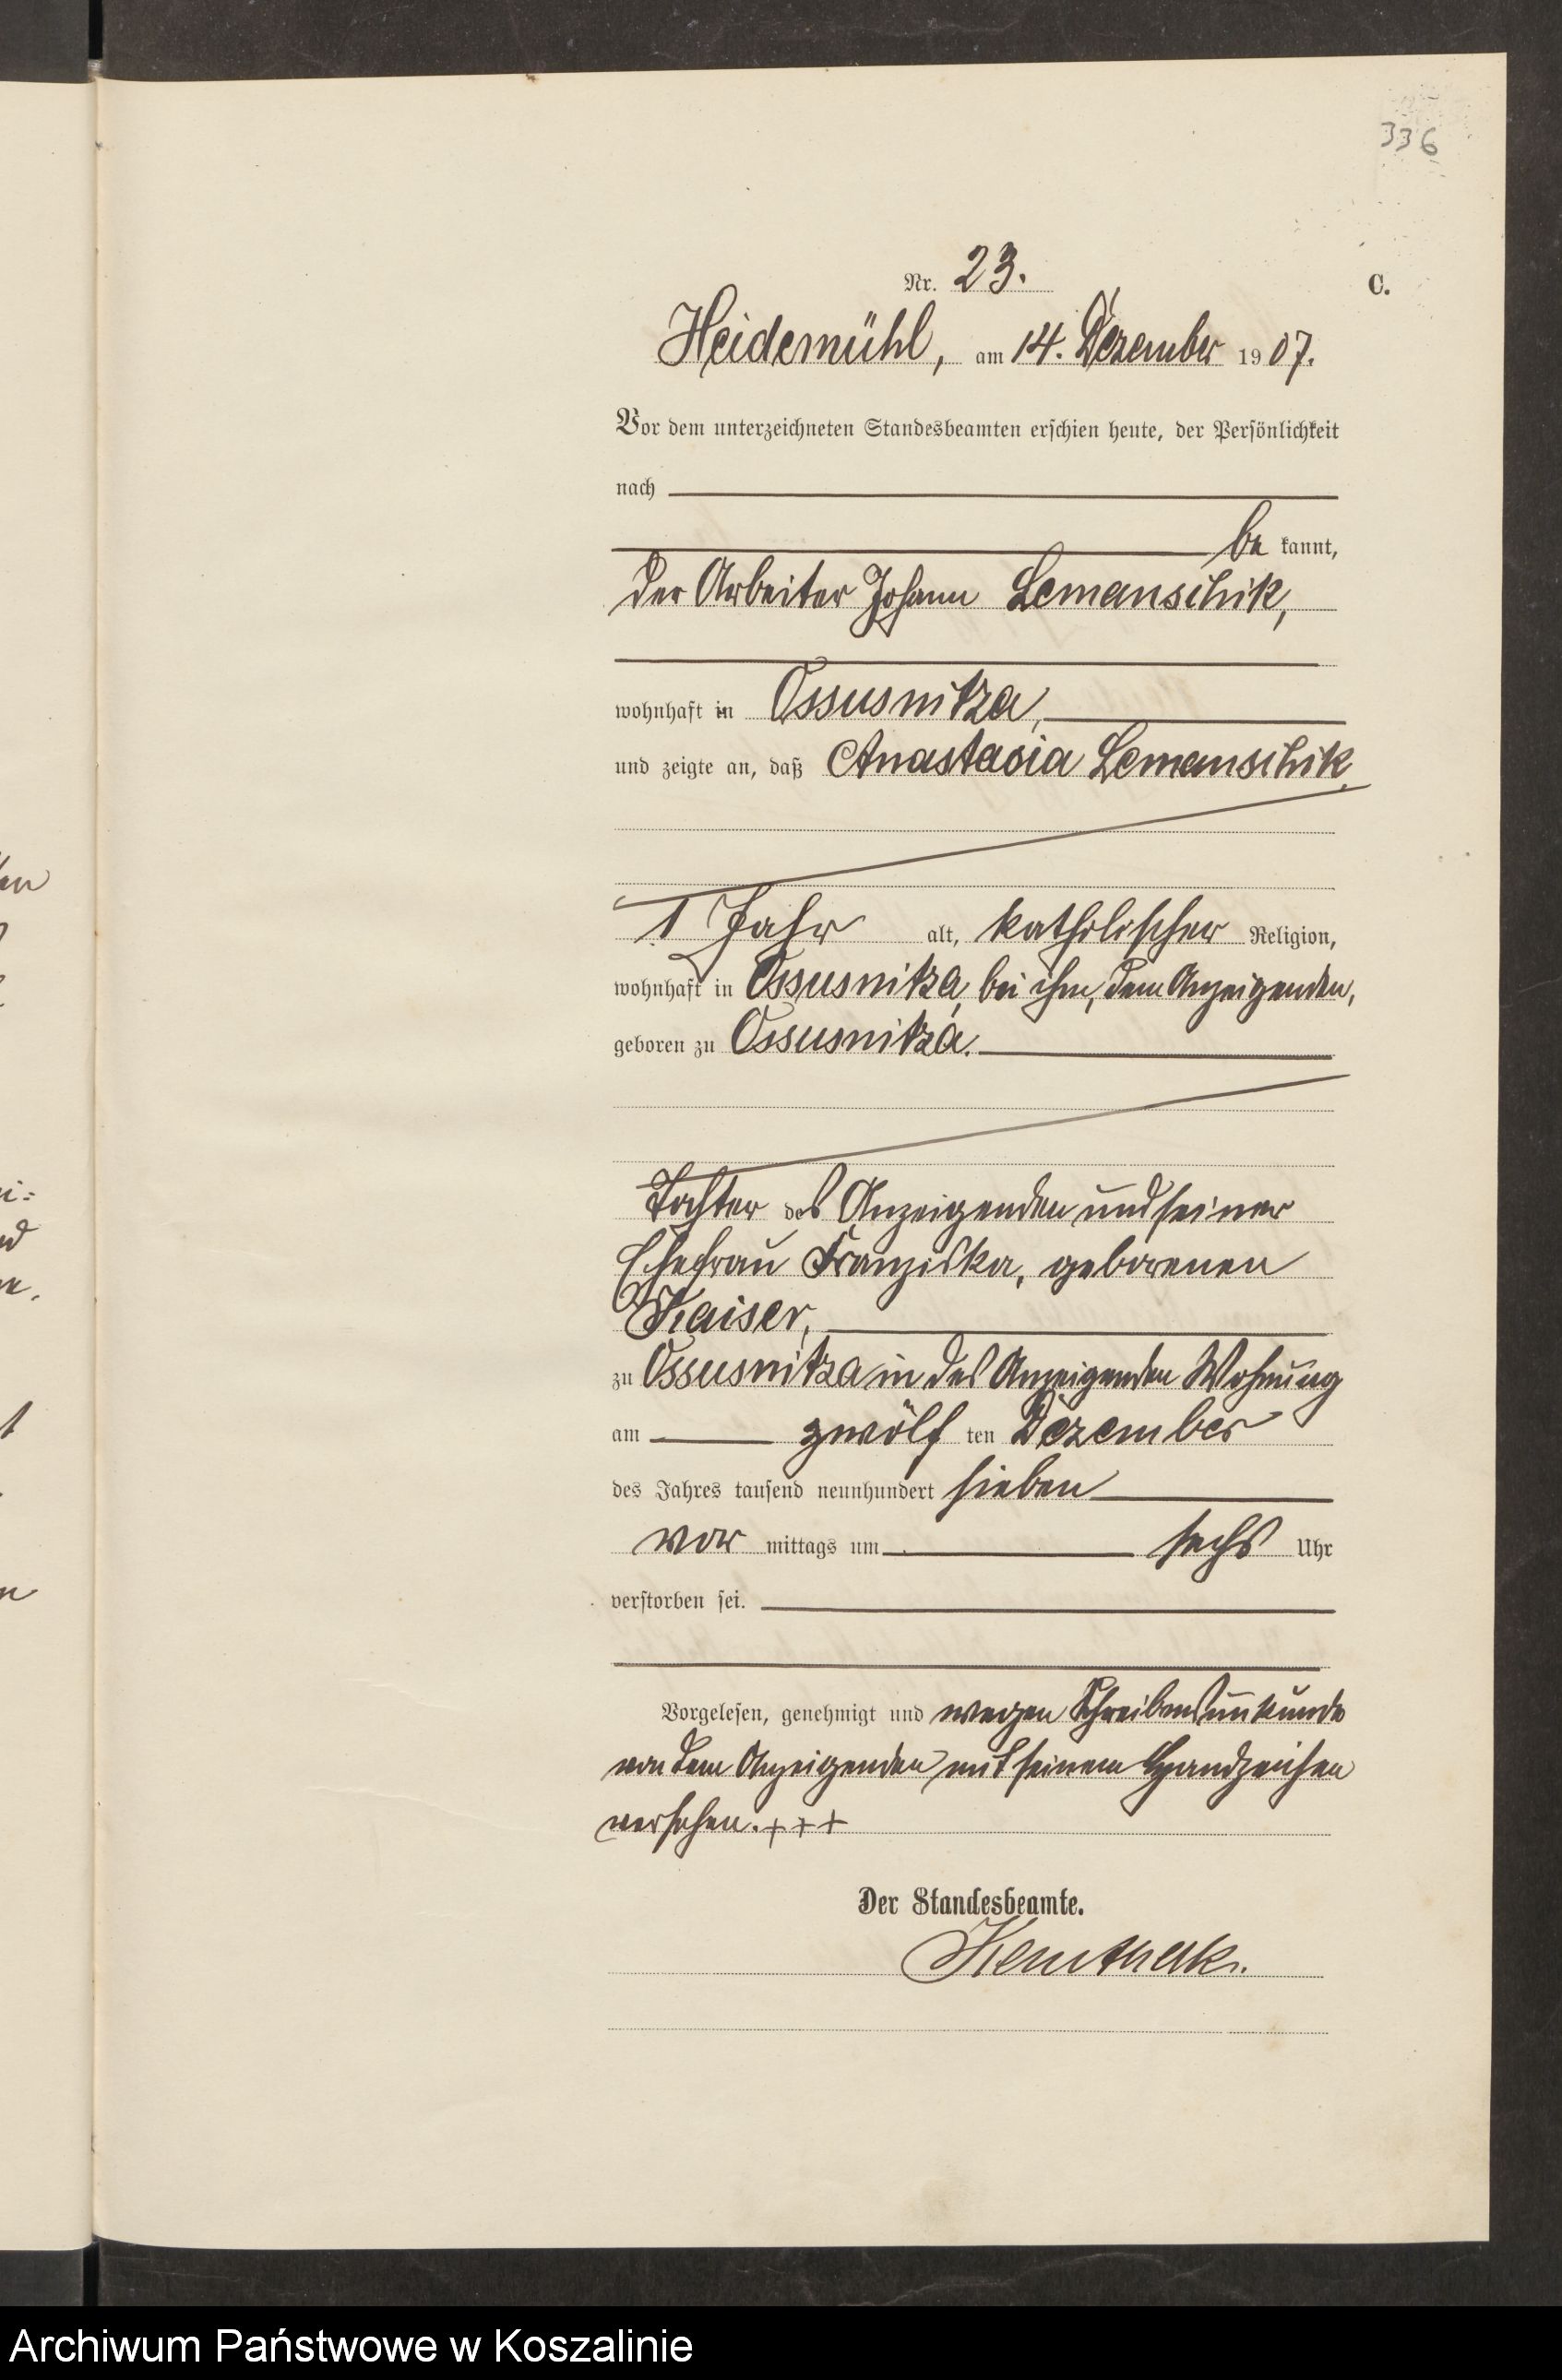 336
Nr. 23.
C.
Heidemühl, am 14. Dezember 1907.
Vor dem unterzeichneten Standesbeamten erschien heute, der Persönlichkeit
nach
be kannt,
der Arbeiter Johann Lemanschik,
wohnhaft in Ossusnitza,
und zeigte an, daß Anastasia Lemanschik,
1 Jahr alt, katholischer Religion,
wohnhaft in Ossusnitza, bei ihm, dem Anzeigenden,
geboren zu Ossusnitza.
Tochter des Anzeigenden und seiner
Ehefrau Franziska, geborenen
Kaiser,
zu Ossusnitza in des Anzeigenden Wohnung
am zwölf ten Dezember
des Jahres tausend neunhundert sieben
vor mittags um sechs Uhr
verstorben sei.
Vorgelesen, genehmigt und wegen Schreibensunkunde
von dem Anzeigenden mit seinem Handzeichen
versehen. + + +
Der Standesbeamte.
en
i:
t
n
Archiwum Państwowe w Koszalinie